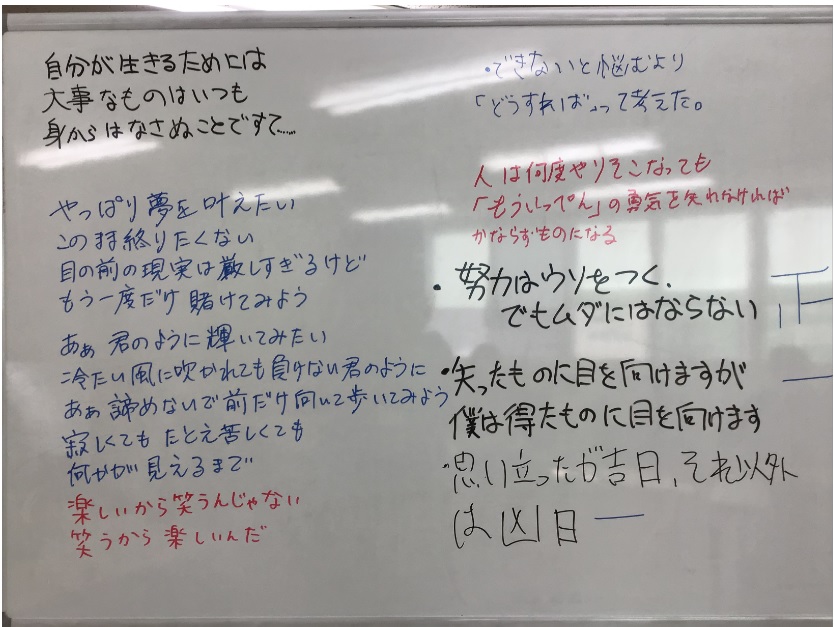 自分が生きるためには
大事なものはいつも
身からはなさぬことですて……
やっぱり夢を叶えたい
このまま終りたくない
目の前の現実は厳しすぎるけど
もう一度だけ賭けてみよう
あぁ 君のように輝いてみたい
冷たい風に吹かれても負けない君のように
あぁ 諦めないで前だけ向いて歩いてみよう
寂しくても たとえ苦しくても
何かが見えるまで
楽しいから笑うんじゃない
笑うから楽しいんだ
・できないと悩むより
「どうすれば」って考えた。
人は何度やりそこなっても
「もういっぺん」の勇気を失わなければ
かならずものになる
・努力はウソをつく、
でもムダにはならない 正
・失ったものに目を向けますが 一
僕は得たものに目を向けます
・思い立ったが吉日、それ以外
は凶日 一